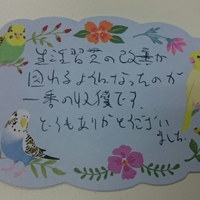 生活習慣の改善が
図れるようになったのが
一番の収穫です。
どうもありがとうござい
ました。